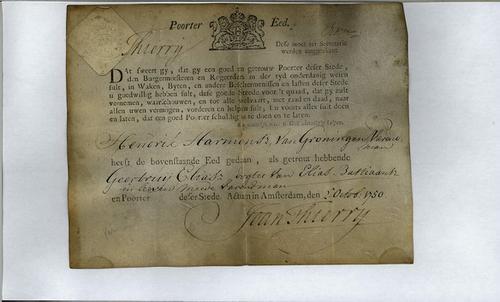 Poorter Eed.
Thierry
Dese moet ter Secretarie
werden aangetekent.
DAt sweert gy, dat gy een goed en getrouw Poorter deser Stede,
den Burgermeesteren en Regeerders in der tyd onderdanig wesen
sult, in Waken, Byten, en andere Beschermenissen en lasten deser Stede
u goedwillig hebben sult, dese goede Stede voor 't quaad, dat gy sult
vernemen, waarschouwen, en tot alle welvaart, met raad en daad, naar
allen uwen vermogen, vorderen en helpen sult. En voorts alles sult doen
en laten, dat een goed Poorter schuldig is te doen en te laten.
Hendrik Harmensz Van Groningen
heeft de bovenstaande Eed gedaan, als getrout hebbende
Geertruy dogter van Elias Bastiaansz
in leven
en Poorter deser Stede. Actum in Amsterdam, den 2 Octob. 1750
Jean Thierry